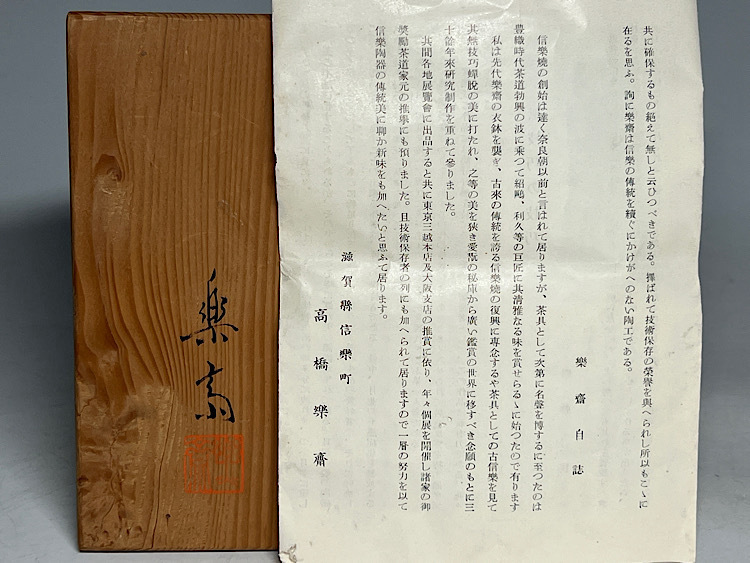 共に確保するもの絶えて無しと云ひつべきである。擇ばれて技術保存の榮譽を與へられし所以もこゝに
在るを思ふ。詢に樂齋は信樂の傳統を續ぐにかけがへのない陶工である。
樂齋自誌
信樂燒の創始は遠く奈良朝以前と言はれて居りますが、茶具として次第に名聲を博するに至つたのは
豊織時代茶道勃興の波に乘つて紹鷗、利久等の巨匠に其淸雅なる味を賞せらるゝに始つたので有ります
私は先代樂齋の衣鉢を襲ぎ、古來の傳統を誇る信樂燒の復興に專念するや茶具としての古信樂を見て
其無技巧蟬脫の美に打たれ、之等の美を狹き愛翫の秘庫から廣い鑑賞の世界に移すべき念願のもとに三
十餘年來硏究制作を重ねて參りました。
其間各地展覽會に出品すると共に東京三越本店及大阪支店の推賞に依り、年々個展を開催し諸家の御
奬勵茶道家元の推擧にも預りました。且技術保存者の列にも加へられて居りますので一層の努力を以て
信樂陶器の傳統美に聊か新味をも加へたいと思ふて居ります。
滋賀縣信樂町
高橋樂齋
樂斎